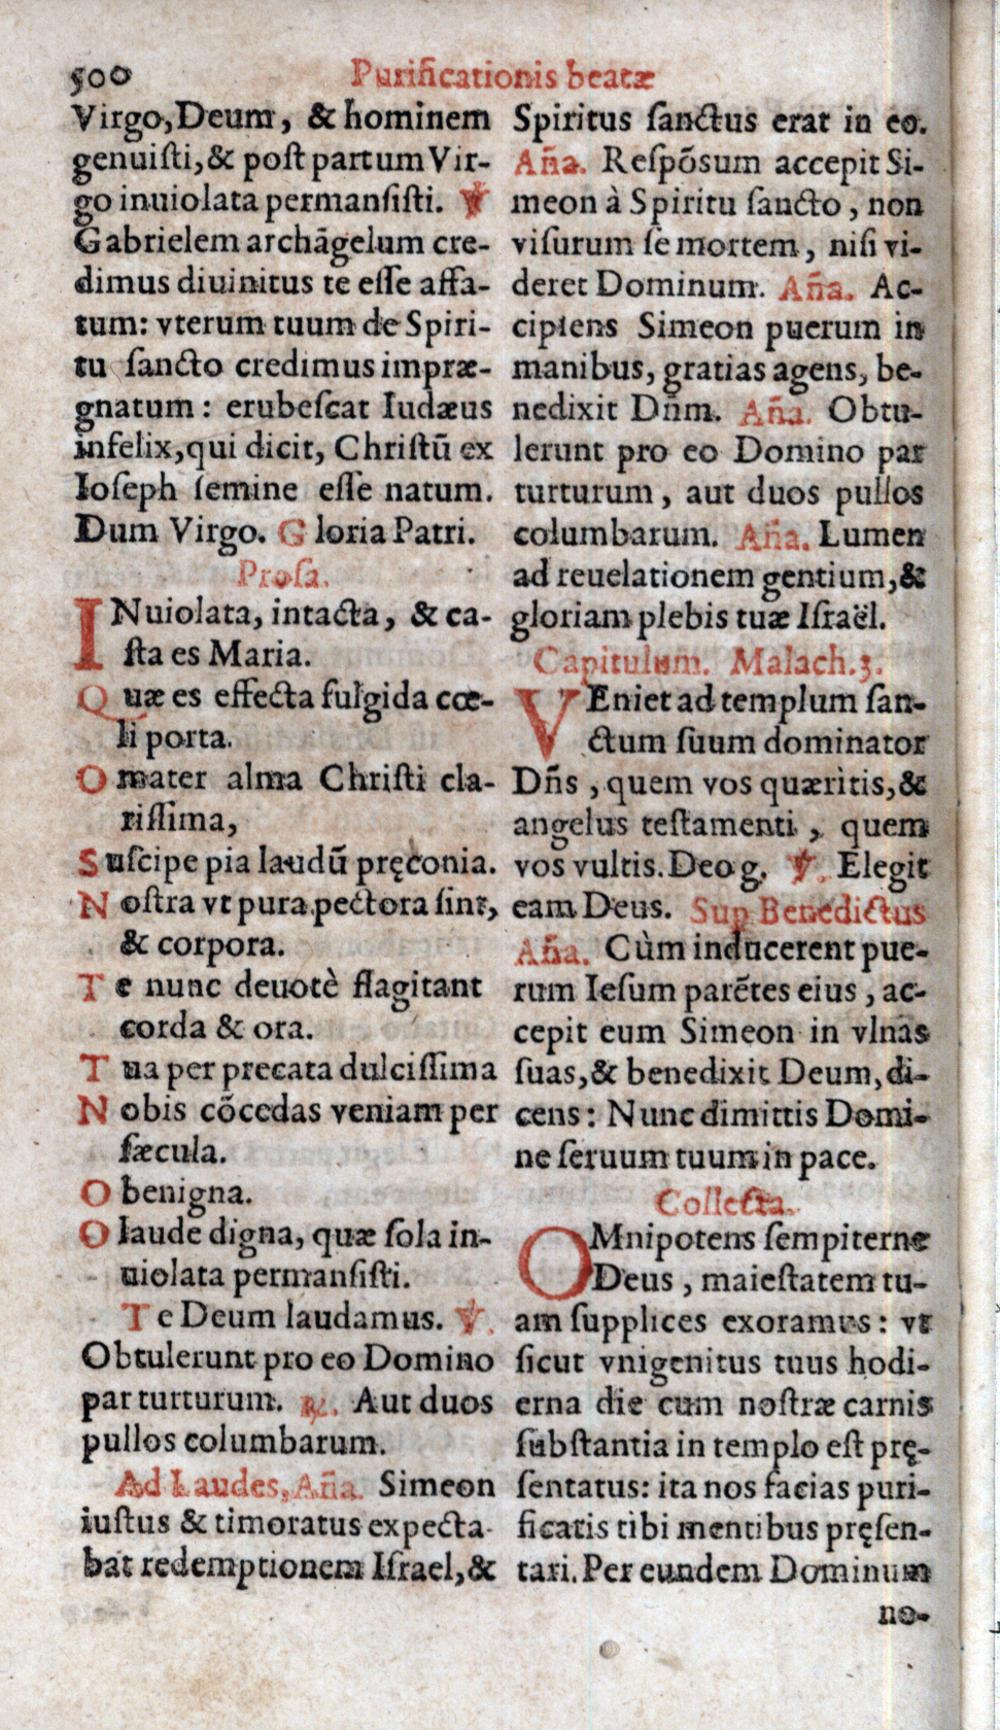 500 Purificationis beatæ
Virgo, Deum, & hominem
genuiſti, & poſt partum Vir-
go inuiolata permanſiſti. ℣
Gabrielem archãgelum cre-
dimus diuinitus te eſſe affa-
tum: vterum tuum de Spiri-
tu ſancto credimus impræ-
gnatum: erubeſcat Iudæus
infelix, qui dicit, Chriſtũ ex
Ioſeph ſemine eſſe natum.
Dum Virgo. Gloria Patri.
Proſa.
INuiolata, intacta, & ca-
ſta es Maria.
Quæ es effecta fulgida cœ-
li porta.
O mater alma Chriſti cla-
riſſima,
Suſcipe pia laudũ pręconia.
Noſtra vt pura pectora ſint,
& corpora.
Te nunc deuotè flagitant
corda & ora.
Tua per precata dulciſſima
Nobis cõcedas veniam per
ſæcula.
O benigna.
O laude digna, quæ ſola in-
uiolata permanſiſti.
Te Deum laudamus. ℣.
Obtulerunt pro eo Domino
par turturum. ℟. Aut duos
pullos columbarum.
Ad Laudes, Añа. Simeon
iuſtus & timoratus expecta-
bat redemptionem Iſrael, &
Spiritus ſanctus erat in eo.
Aña. Reſpõſum accepit Si-
meon à Spiritu ſancto, non
viſurum ſe mortem, niſi vi-
deret Dominum. Aña. Ac-
cipiens Simeon puerum in
manibus, gratias agens, be-
nedixit Dñm. Aña. Obtu-
lerunt pro eo Domino par
turturum, aut duos pullos
columbarum. Aña. Lumen
ad reuelationem gentium, &
gloriam plebis tuæ Iſraël.
Capitulum. Malach. 3.
VEniet ad templum ſan-
ctum ſuum dominator
Dñs, quem vos quæritis, &
angelus teſtamenti, quem
vos vultis. Deo g. ℣. Elegit
eam Deus. Sup Benedictus
Aña. Cùm inducerent pue-
rum Ieſum parẽtes eius, ac-
cepit eum Simeon in vlnas
ſuas, & benedixit Deum, di-
cens: Nunc dimittis Domi-
ne ſeruum tuum in pace.
Collecta.
OMnipotens ſempiterne
Deus, maieſtatem tu-
am ſupplices exoramus: vt
ſicut vnigenitus tuus hodi-
erna die cum noſtræ carnis
ſubſtantia in templo eſt prę-
ſentatus: ita nos facias puri-
ficatis tibi mentibus pręſen-
tari. Per eundem Dominum
no-